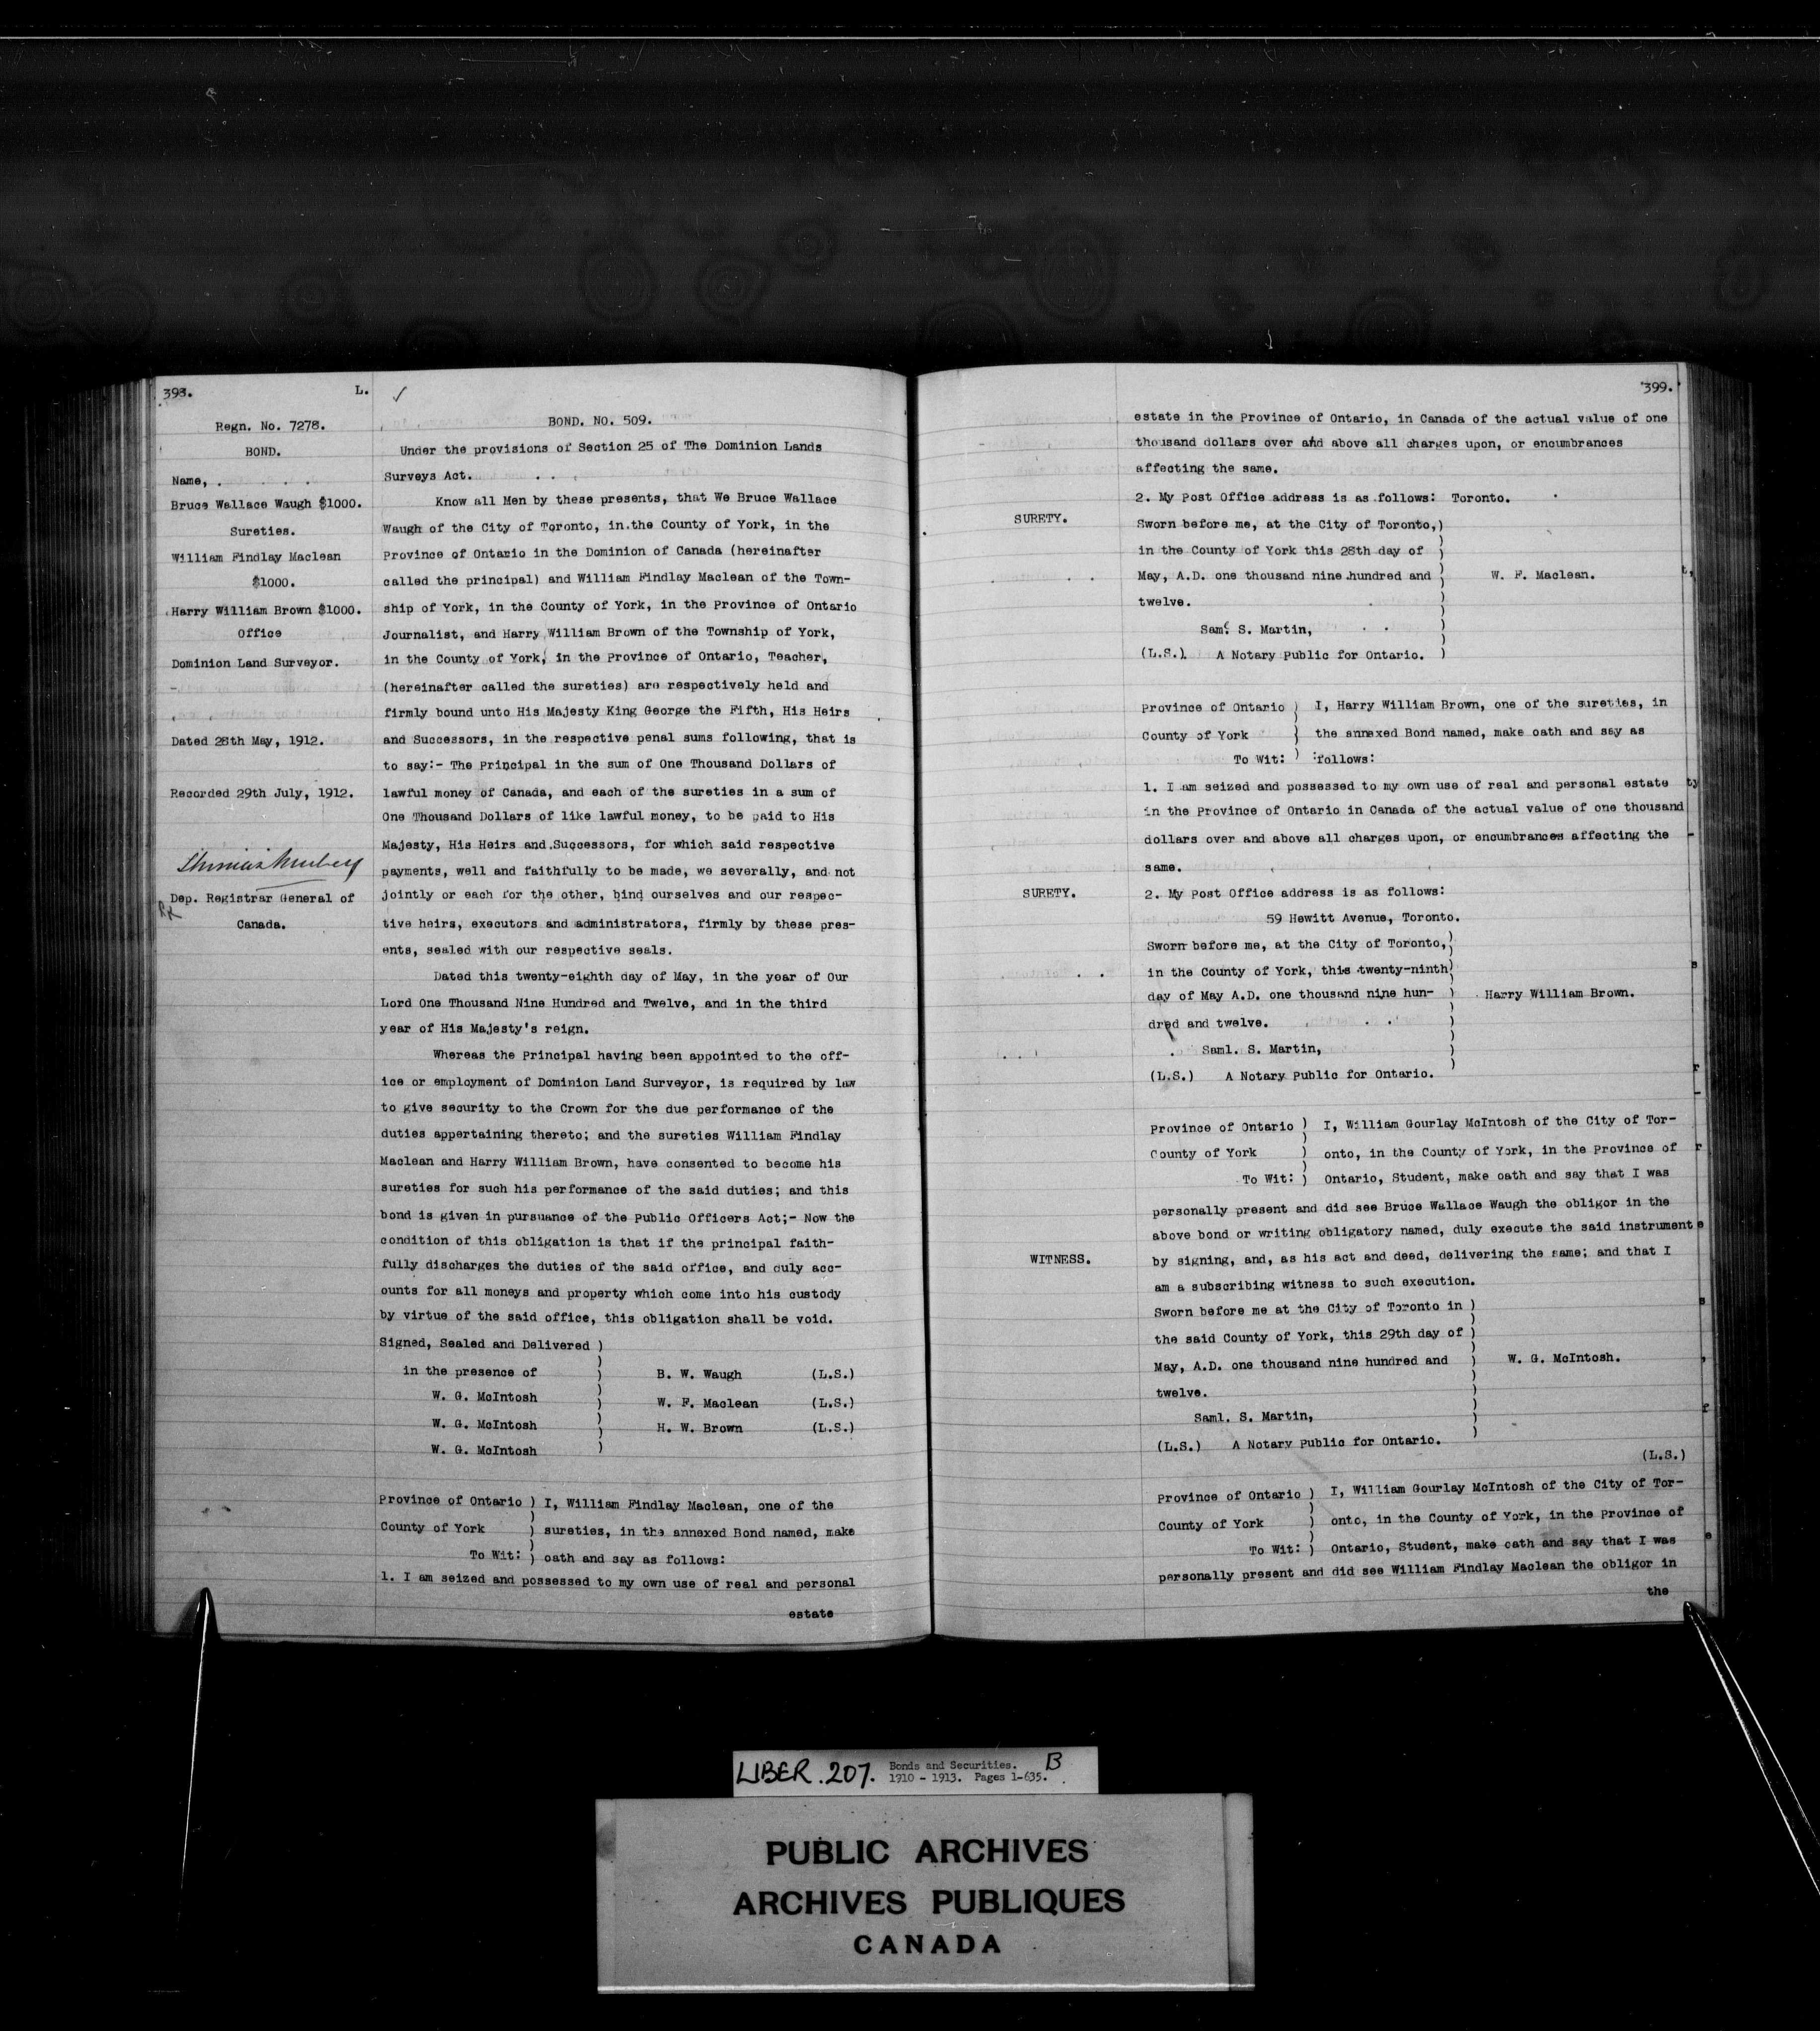 398. L.
Regn. No. 7278.
BOND.
Name, .
Bruce Wallace Waugh $1000.
Sureties.
William Findlay Maclean
$1000.
Harry William Brown $1000.
Office
Dominion Land Surveyor.
Dated 28th May, 1912.
Recorded 29th July, 1912.
Dep. Registrar General of
Canada.
BOND. NO. 509.
Under the provisions of Section 25 of The Dominion Lands
Surveys Act.
Know all Men by these presents, that We Bruce Wallace
Waugh of the City of Toronto, in the County of York, in the
Province of Ontario in the Dominion of Canada (hereinafter
called the principal) and William Findlay Maclean of the Town-
ship of York, in the County of York, in the Province of Ontario
Journalist, and Harry William Brown of the Township of York,
in the County of York, in the Province of Ontario, Teacher,
(hereinafter called the sureties) are respectively held and
firmly bound unto His Majesty King George the Fifth, His Heirs
and Successors, in the respective penal sums following, that is
to say:- The Principal in the sum of One Thousand Dollars of
lawful money of Canada, and each of the sureties in a sum of
One Thousand Dollars of like lawful money, to be paid to His
Majesty, His Heirs and Successors, for which said respective
payments, well and faithfully to be made, we severally, and not
jointly or each for the other, bind ourselves and our respec-
tive heirs, executors and administrators, firmly by these pres-
ents, sealed with our respective seals.
Dated this twenty-eighth day of May, in the year of Our
Lord One Thousand Nine Hundred and Twelve, and in the third
year of His Majesty's reign.
Whereas the Principal having been appointed to the off-
ice or employment of Dominion Land Surveyor, is required by law
to give security to the Crown for the due performance of the
duties appertaining thereto; and the sureties William Findlay
Maclean and Harry William Brown, have consented to become his
sureties for such his performance of the said duties; and this
bond is given in pursuance of the Public Officers Act;- Now the
condition of this obligation is that if the principal faith-
fully discharges the duties of the said office, and duly acc-
ounts for all moneys and property which come into his custody
by virtue of the said office, this obligation shall be void.
Signed, Sealed and Delivered )
in the presence of ) B. W. Waugh (L.S.)
W. G. McIntosh ) W. F. Maclean (L.S.)
W. G. McIntosh ) H. W. Brown (L.S.)
W. G. McIntosh )
Province of Ontario ) I, William Findlay Maclean, one of the
County of York ) sureties, in the annexed Bond named, make
To Wit: ) oath and say as follows:
1. I am seized and possessed to my own use of real and personal
estate
399.
estate in the Province of Ontario, in Canada of the actual value of one
thousand dollars over and above all charges upon, or encumbrances
affecting the same.
2. My Post Office address is as follows: Toronto.
SURETY.
Sworn before me, at the City of Toronto,)
in the County of York this 28th day of )
May, A.D. one thousand nine hundred and ) W. F. Maclean.
twelve. )
Saml. S. Martin, )
(L.S.) A Notary Public for Ontario. )
Province of Ontario ) I, Harry William Brown, one of the sureties, in
County of York ) the annexed Bond named, make oath and say as
To Wit: ) follows:
1. I am seized and possessed to my own use of real and personal estate
in the Province of Ontario in Canada of the actual value of one thousand
dollars over and above all charges upon, or encumbrances affecting the
same.
SURETY.
2. My Post Office address is as follows:
59 Hewitt Avenue, Toronto.
Sworn before me, at the City of Toronto,)
in the County of York, this twenty-ninth)
day of May A.D. one thousand nine hun- ) Harry William Brown.
dred and twelve. )
Saml. S. Martin, )
(L.S.) A Notary Public for Ontario. )
Province of Ontario ) I, William Gourlay McIntosh of the City of Tor-
County of York ) onto, in the County of York, in the Province of
To Wit: ) Ontario, Student, make oath and say that I was
personally present and did see Bruce Wallace Waugh the obligor in the
above bond or writing obligatory named, duly execute the said instrument
WITNESS.
by signing, and, as his act and deed, delivering the same; and that I
am a subscribing witness to such execution.
Sworn before me at the City of Toronto in )
the said County of York, this 29th day of )
May, A.D. one thousand nine hundred and ) W. G. McIntosh.
twelve. )
Saml. S. Martin, )
(L.S.) A Notary Public for Ontario. )
(L.S.)
Province of Ontario ) I, William Gourlay McIntosh of the City of Tor-
County of York ) onto, in the County of York, in the Province of
To Wit: ) Ontario, Student, make oath and say that I was
personally present and did see William Findlay Maclean the obligor in
the
LIBER. 207. Bonds and Securities. B
1910 - 1913. Pages 1-635.
PUBLIC ARCHIVES
ARCHIVES PUBLIQUES
CANADA